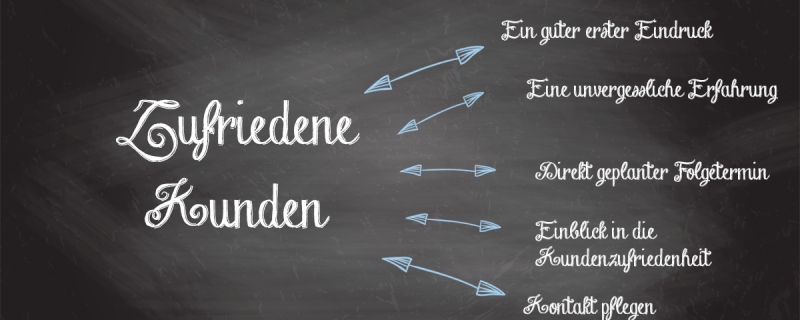 Zufriedene
Kunden
Ein guter erster Eindruck
Eine unvergessliche Erfahrung
Direkt geplanter Folgetermin
Einblick in die
Kundenzufriedenheit
Kontakt pflegen